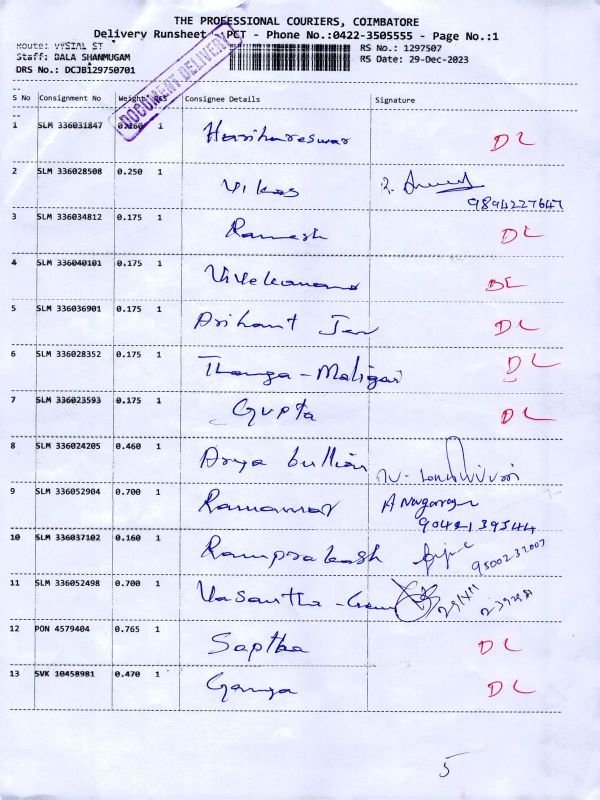 THE PROFESSIONAL COURIERS, COIMBATORE
Delivery Runsheet - PCT - Phone No.:0422-3505555 - Page No.:1
Route: VYSIAL ST
RS No.: 1297507
Staff: BALA SHANMUGAM
RS Date: 29-Dec-2023
DRS No.: DCJB129750701
DOCUMENT DELIVERY
S No Consignment No Weight PCS Consignee Details Signature
1 SLM 336031847 0.160 1 Harihareswar DL
2 SLM 336028508 0.250 1 Vikas 9894227647
3 SLM 336034812 0.175 1 Ramesh DL
4 SLM 336040101 0.175 1 Vivekanand DL
5 SLM 336036901 0.175 1 Arihant Jan DL
6 SLM 336028352 0.175 1 Thanga-Maligai DL
7 SLM 336023593 0.175 1 Gupta DL
8 SLM 336024205 0.460 1 Arya bullian
9 SLM 336052904 0.700 1 A Nagarraj
9042139544
10 SLM 336037102 0.160 1 Ramprakash 9500232007
11 SLM 336052498 0.700 1 Vasantha-
12 PON 4579404 0.765 1 Saptha DL
13 SVK 10458981 0.470 1 Ganga DL
5